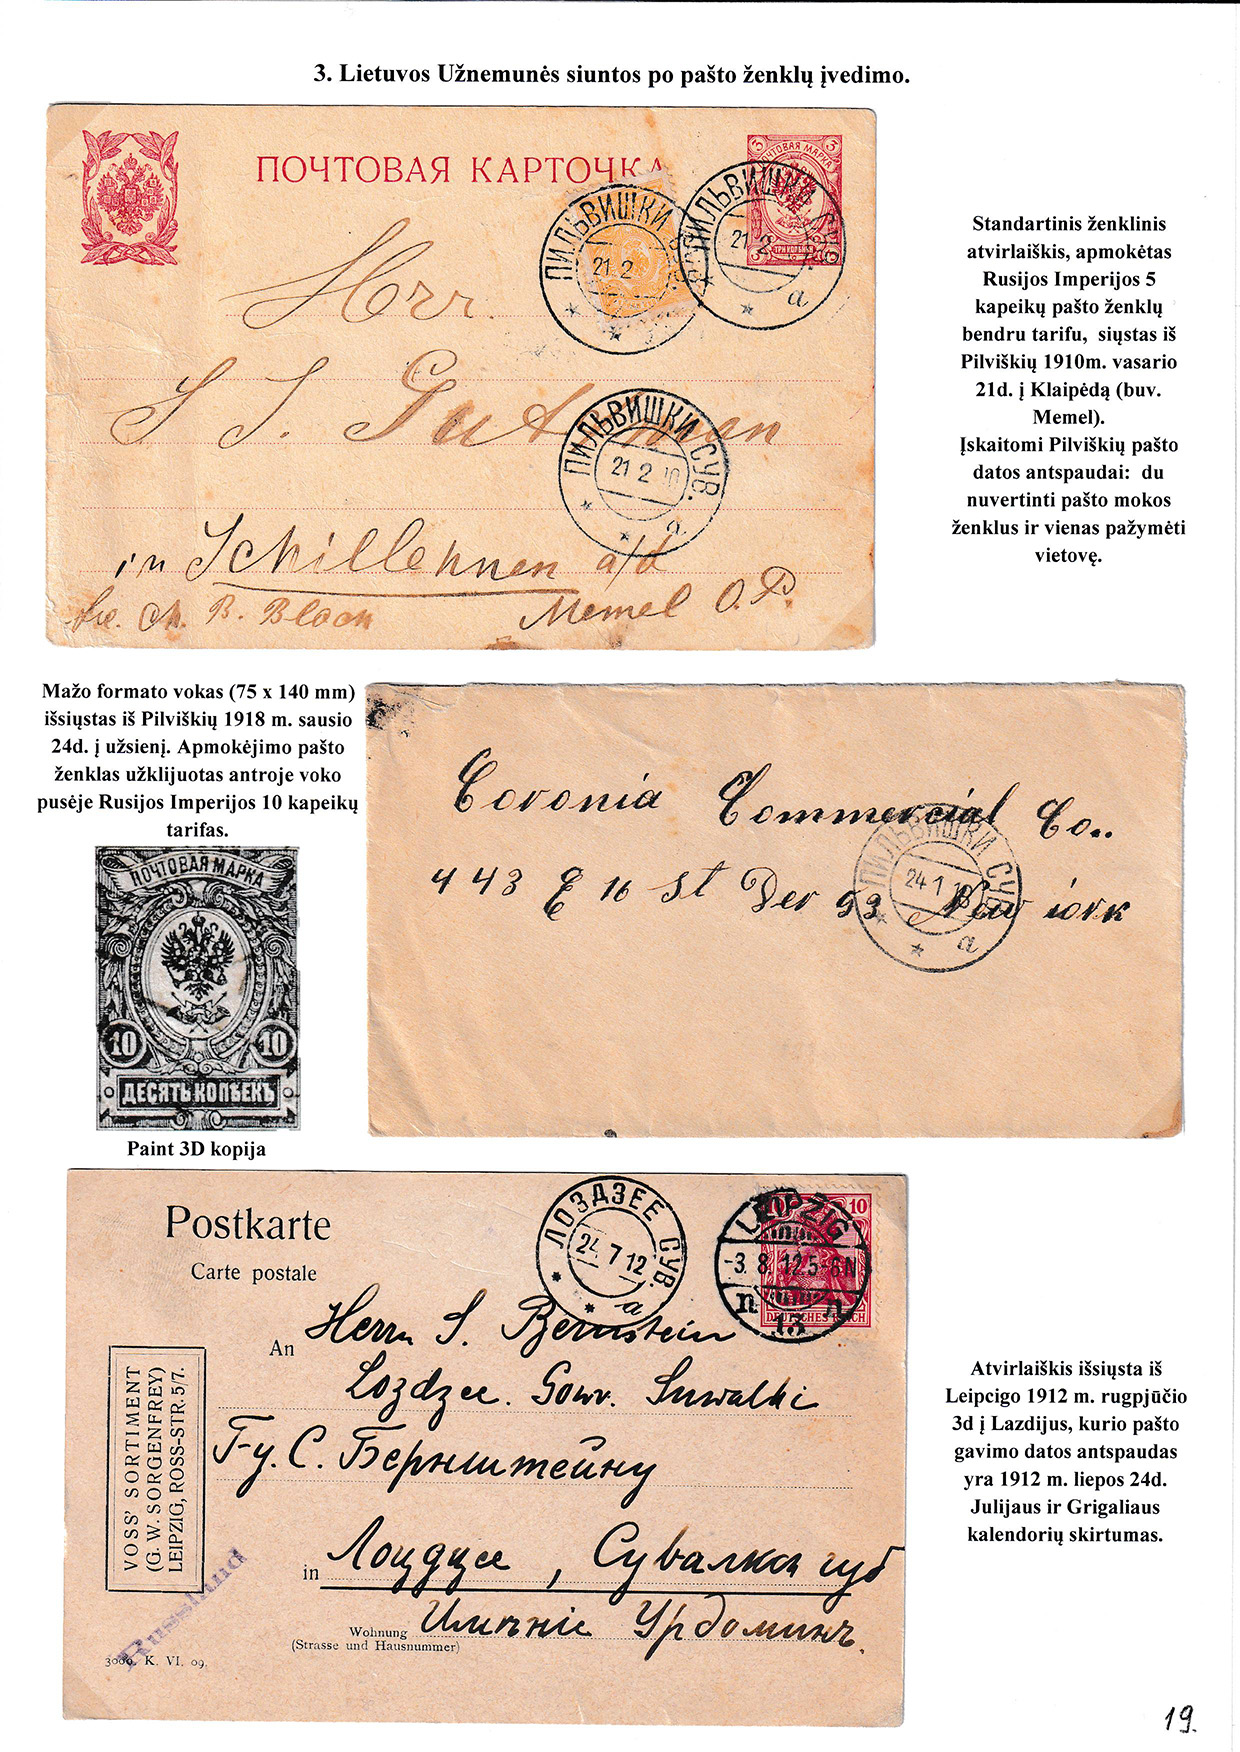 3. Lietuvos Užnemunės siuntos po pašto ženklų įvedimo.
ПОЧТОВАЯ КАРТОЧКА
3 3
ПОЧТОВАЯ МАРКА
ТРИ КОПѢЙКИ
ПИЛЬВИШКИ СУВ.
21 2
ПИЛЬВИШКИ СУВ.
21 2
а
Herr.
S. S.
ПИЛЬВИШКИ СУВ.
21 2 10
а
in Schillehnen a/d
Memel O. P.
B. Bloch
Standartinis ženklinis
atvirlaiškis, apmokėtas
Rusijos Imperijos 5
kapeikų pašto ženklų
bendru tarifu, siųstas iš
Pilviškių 1910m. vasario
21d. į Klaipėdą (buv.
Memel).
Įskaitomi Pilviškių pašto
datos antspaudai: du
nuvertinti pašto mokos
ženklus ir vienas pažymėti
vietovę.
Mažo formato vokas (75 x 140 mm)
išsiųstas iš Pilviškių 1918 m. sausio
24d. į užsienį. Apmokėjimo pašto
ženklas užklijuotas antroje voko
pusėje Rusijos Imperijos 10 kapeikų
tarifas.
ПОЧТОВАЯ МАРКА
10 10
ДЕСЯТЬ КОПѢЕКЪ
Paint 3D kopija
Coronia Commercial Co..
443 E 16 st Dev 93 New iork
ПИЛЬВИШКИ СУВ.
24 1
а
Postkarte
Carte postale
ЛОЗДЗЕЕ СУВ.
24 7 12
а
LEIPZIG
-3. 8. 12. 5-6N
n 13 n
10 10
DEUTSCHES REICH
An Herrn S. Bernstein
Lozdzee. Gouv. Suwalki
Г-у. С. Бернштейну
in Лоздзее, Сувалкск губ
Wohnung Имѣніе Урдоминъ.
(Strasse und Hausnummer)
VOSS' SORTIMENT
(G. W. SORGENFREY)
LEIPZIG, ROSS-STR. 5/7.
Russland
3000. K. VI. 09.
Atvirlaiškis išsiųsta iš
Leipcigo 1912 m. rugpjūčio
3d į Lazdijus, kurio pašto
gavimo datos antspaudas
yra 1912 m. liepos 24d.
Julijaus ir Grigaliaus
kalendorių skirtumas.
19.